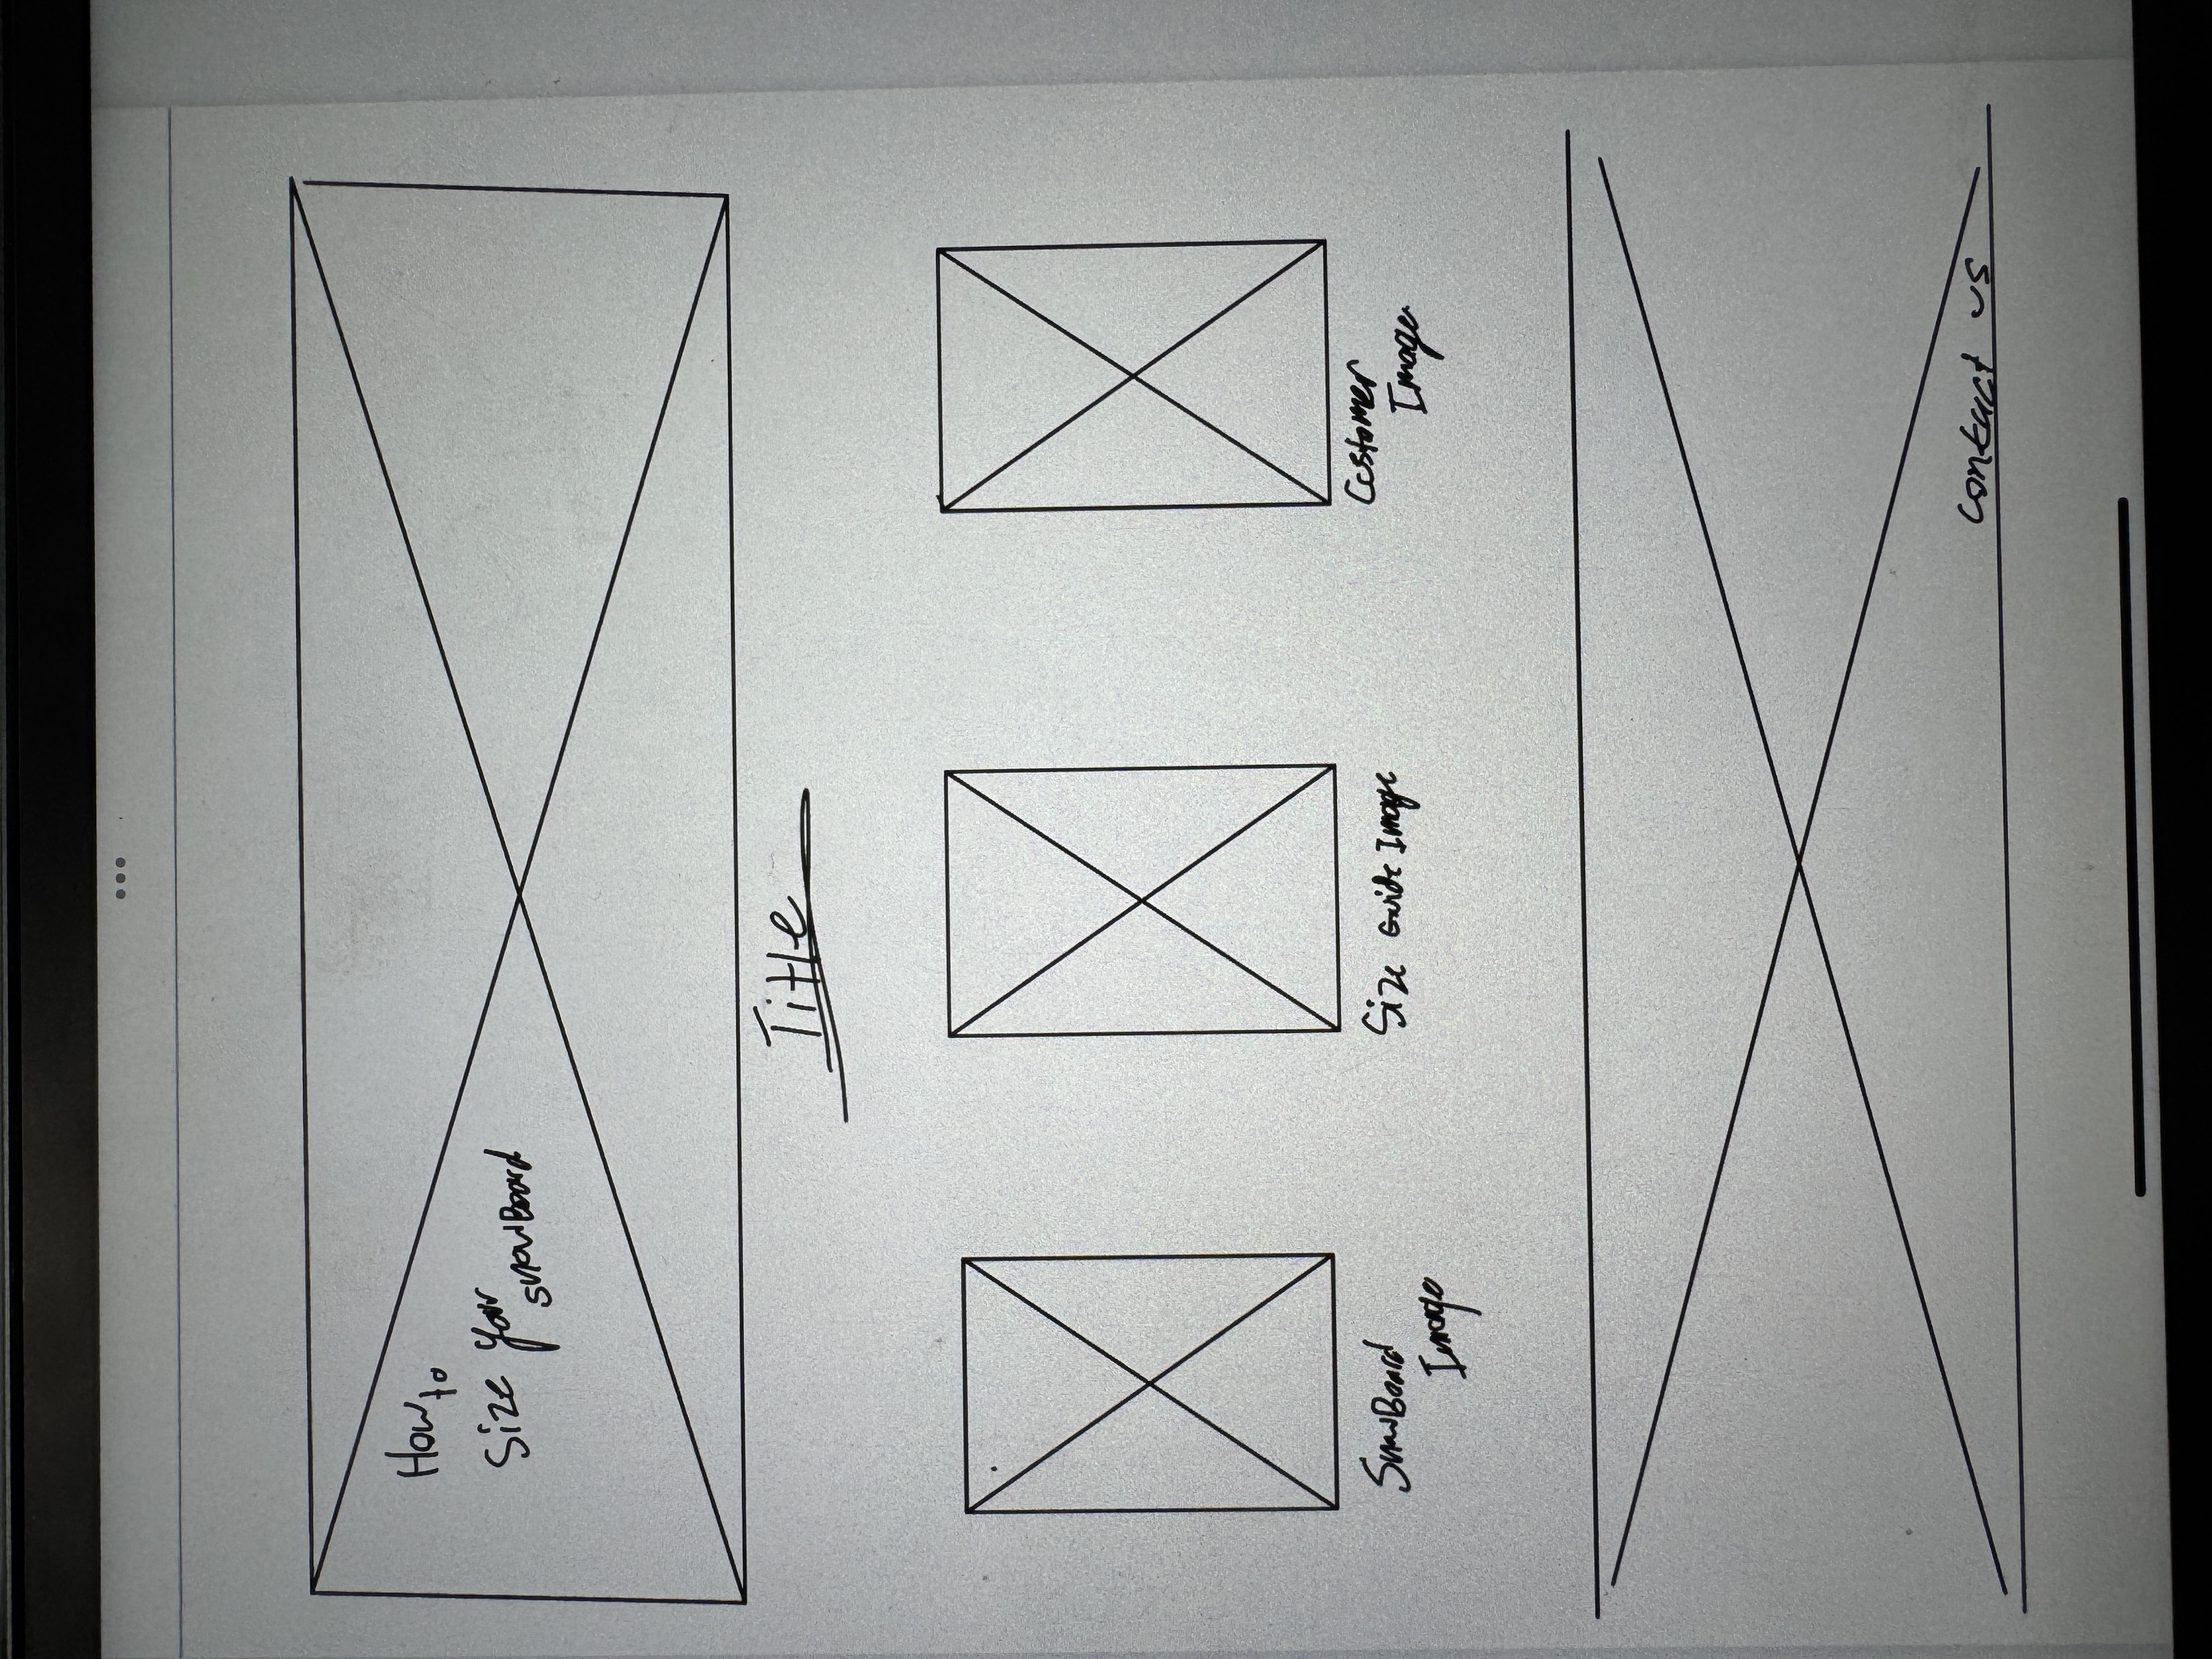 How to
Size your
snowBoard
Title
SnowBoard
Image
Size Guide Image
Customer
Image
contact us